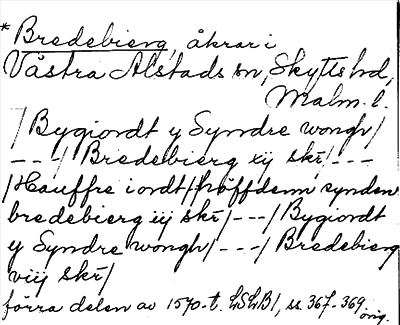 * Bredebierg, åkrar i
Västra Alstads sn, Skytts hd,
Malm. l.
/Bygiordt y Syndre wongh/
---/ Bredebierg xij skr/---
/Hauffre iordt/ höffdenn synden
bredebierg iij skr/---/ Bygiordt
y Syndre wongh/---/ Bredebierg
viij skr/
förra delen av 1570-t. LSLB1, ss. 367-369
orig.